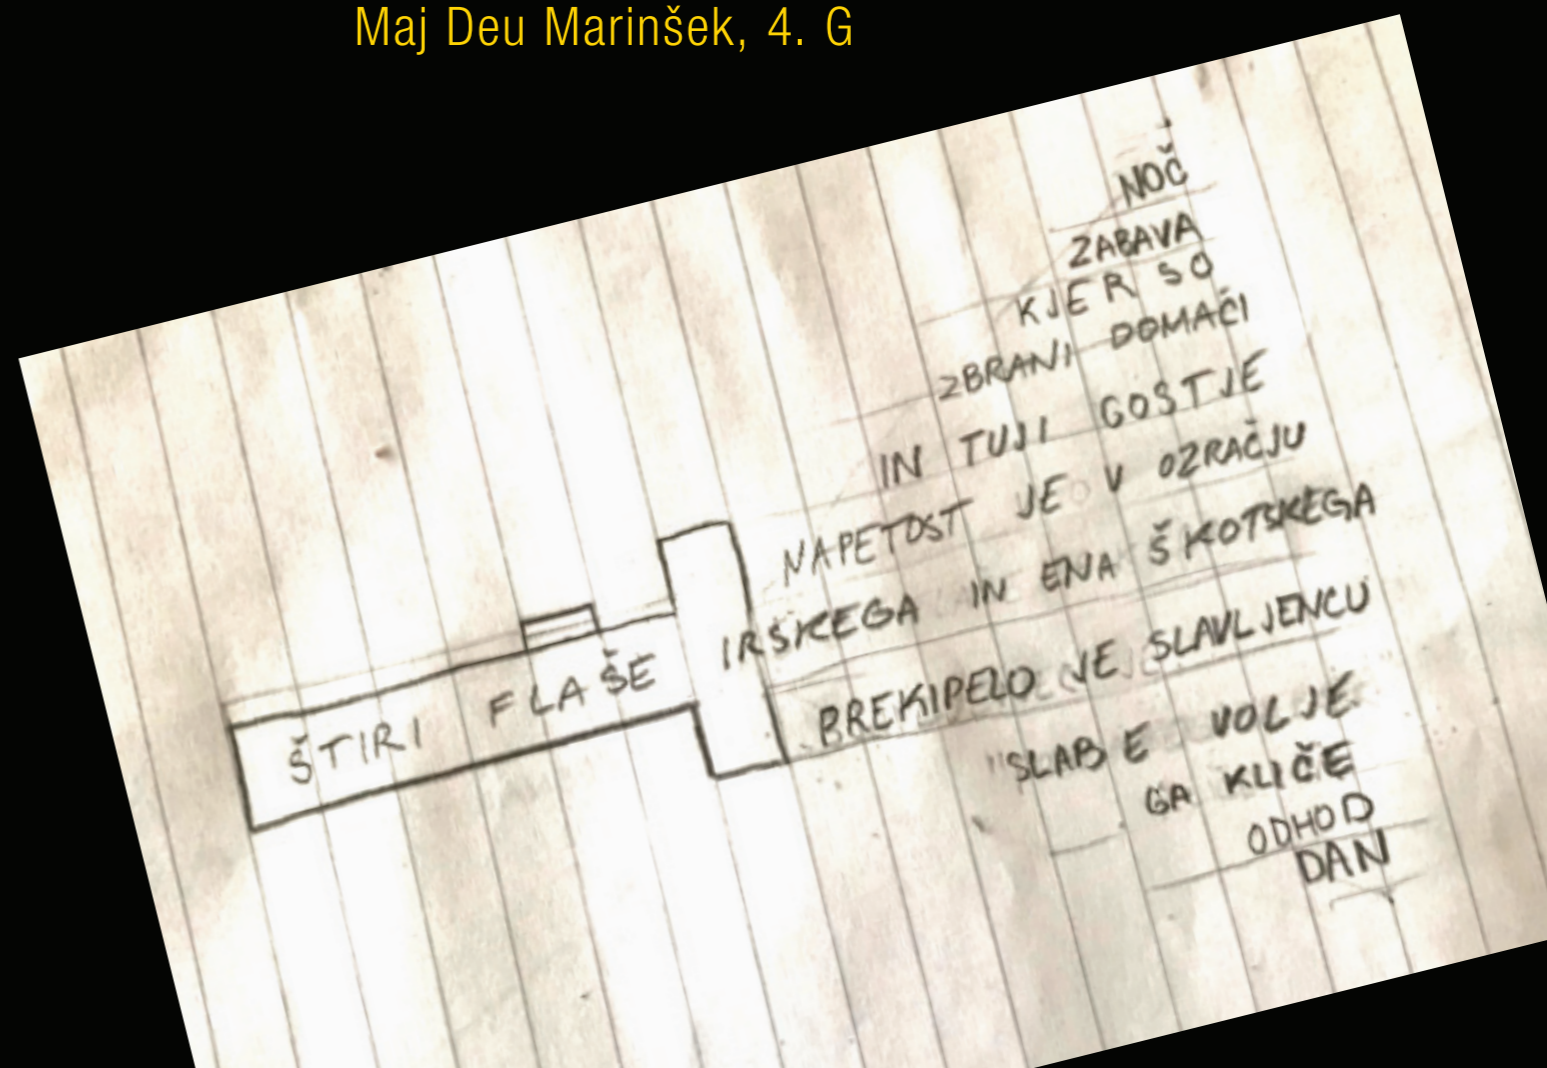 Maj Deu Marinšek, 4. G
NOČ
ZABAVA
KJER SO
ZBRANI DOMAČI
IN TUJI GOSTJE
NAPETOST JE V OZRAČJU
ŠTIRI FLAŠE IRSKEGA IN ENA ŠKOTSKEGA
PREKIPELO JE SLAVLJENCU
SLABE VOLJE
GA KLIČE
ODHOD
DAN